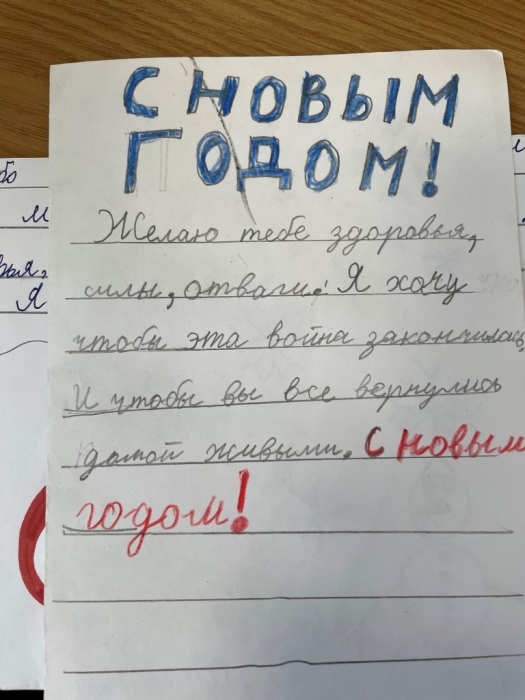 С НОВЫМ
ГОДОМ!
Желаю тебе здоровья,
силы, отваги. Я хочу
чтобы эта война закончилась
И чтобы вы все вернулись
домой живыми. С новым
годом!
бо
м
вья,
Я